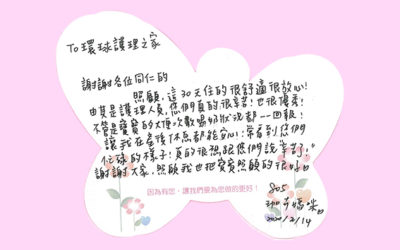 To 環球護理之家
謝謝各位同仁的
照顧,這30天住的很舒適很放心!
由其是護理人員,您們真的很辛苦!也很優秀!
不管是寶寶的大便次數喝奶狀況都一一回報!
讓我在產後休息都能安心!常看到您們
忙碌的樣子!真的很想跟您們說辛苦了,"
謝謝大家,照顧我也把寶寶照顧的很好
因為有您,讓我們變為您做的更好!
805
媽咪
2020/2/14